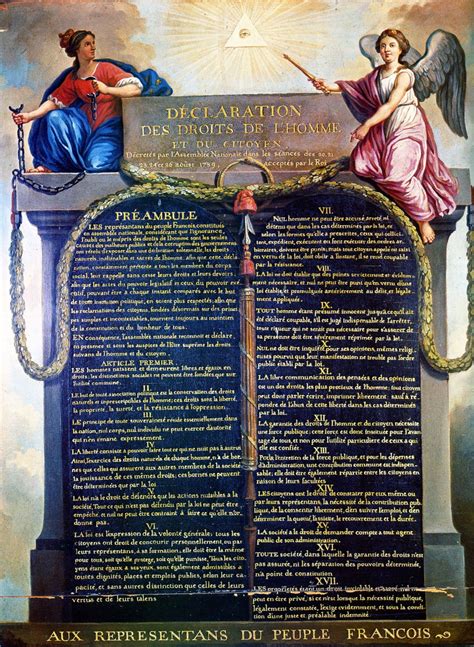 DÉCLARATION
DES DROITS DE L'HOMME
ET DU CITOYEN,
Décrétés par l'Assemblée Nationale dans les séances des 20, 21
23, 24 et 26 août 1789, acceptés par le Roi
PRÉAMBULE
LES représentans du peuple François, constitués
en assemblée nationale, considérant que l'ignorance,
l'oubli ou le mépris des droits de l'homme sont les seules
causes des malheurs publics et de la corruption des gouvernemens
ont résolu d'exposer dans une déclaration solemnelle, les droits
naturels, inaliénables et sacrés de l'homme; afin que cette décla-
ration, constamment présente à tous les membres du corps
social, leur rappelle sans cesse leurs droits et leurs devoirs;
afin que les actes du pouvoir législatif et ceux du pouvoir exé-
cutif, pouvant être à chaque instant comparés avec le but
de toute institution politique, en soient plus respectés; afin que
les réclamations des citoyens, fondées désormais sur des prin-
cipes simples et incontestables, tournent toujours au maintien
de la constitution et du bonheur de tous.
EN conséquence, l'assemblée nationale reconnoît et déclare,
en présence et sous les auspices de l'Etre suprême les droits
suivans de l'homme et du citoyen.
ARTICLE PREMIER.
LES hommes naissent et demeurent libres et égaux en
droits; les distinctions sociales ne peuvent être fondées que sur
l'utilité commune.
II.
LE but de toute association politique est la conservation des droits
naturels et imprescriptibles de l'homme; ces droits sont la liberté,
la propriété, la sureté, et la résistance à l'oppression.
III.
LE principe de toute souveraineté réside essentiellement dans
la nation, nul corps, nul individu ne peut exercer d'autorité
qui n'en émane expressément.
IV.
LA liberté consiste à pouvoir faire tout ce qui ne nuit pas à autrui
Ainsi, l'exercice des droits naturels de chaque homme, n'a de bor-
nes que celles qui assurent aux autres membres de la société
la jouissance de ces mêmes droits; ces bornes ne peuvent
être déterminées que par la loi.
V.
LA loi n'a le droit de défendre que les actions nuisibles à la
société. Tout ce qui n'est pas défendu par la loi ne peut être
empêché, et nul ne peut être contraint à faire ce qu'elle n'or-
donne pas.
VI.
LA loi est l'expression de la volonté générale; tous les
citoyens ont droit de concourir personnellement, ou par
leurs représentans, à sa formation; elle doit être la même
pour tous, soit qu'elle protège, soit qu'elle punisse. Tous les cito-
yens étant égaux à ses yeux, sont également admissibles à
toutes dignités, places et emplois publics, selon leur ca-
pacité, et sans autres distinction que celles de leurs
vertus et de leurs talens
VII.
NUL homme ne peut être accusé, arrêté, ni
détenu que dans les cas déterminés par la loi, et
selon les formes qu'elle a prescrites, ceux qui sollici-
tent, expédient, exécutent ou font exécuter des ordres ar-
bitraires, doivent être punis; mais tout citoyen appelé ou saisi
en vertu de la loi, doit obéir à l'instant, il se rend coupable
par la résistance.
VIII.
LA loi ne doit établir que des peines strictement et évidem-
ment nécessaires, et nul ne peut être puni qu'en vertu d'une
loi établie et promulguée antérieurement au délit, et légale-
ment appliquée.
IX.
TOUT homme étant présumé innocent jusqu'à ce qu'il ait
été déclaré coupable, s'il est jugé indispensable de l'arrêter,
toute rigueur qui ne serait pas nécessaire pour s'assurer de
sa personne doit être sévèrement réprimée par la loi.
X.
NUL ne doit être inquiété pour ses opinions, mêmes religi-
euses pourvu que leur manifestation ne trouble pas l'ordre
public établi par la loi.
XI.
LA libre communication des pensées et des opinions
est un des droits les plus précieux de l'homme; tout citoyen
peut donc parler, écrire, imprimer librement; sauf à ré-
pondre de l'abus de cette liberté dans les cas déterminés
par la loi.
XII.
LA garantie des droits de l'homme et du citoyen nécessite
une force publique; cette force est donc instituée pour l'avan-
tage de tous, et non pour l'utilité particulière de ceux à qui
elle est confiée.
XIII.
POUR l'entretien de la force publique, et pour les dépenses
d'administration, une contribution commune est indispen-
sable; elle doit être également répartie entre les citoyens en
raison de leurs facultées.
XIV.
LES citoyens ont le droit de constater par eux même ou
par leurs représentans, la nécessité de la contribution pub-
lique, de la consentir librement, d'en suivre l'emploi, et d'en
déterminer la quotité, l'assiette, le recouvrement et la durée.
XV.
LA société a le droit de demander compte à tout agent
public de son administration.
XVI.
TOUTE société, dans laquelle la garantie des droits n'est
pas assurée, ni la séparation des pouvoirs déterminée,
n'a point de constitution.
XVII.
LES propriétés étant un droit inviolable et sacré, nul
ne peut en être privé, si ce n'est lorsque la nécessité publique,
légalement constatée, l'exige évidemment, et sous la condition
d'une juste et préalable indemnité.
AUX REPRESENTANS DU PEUPLE FRANCOIS